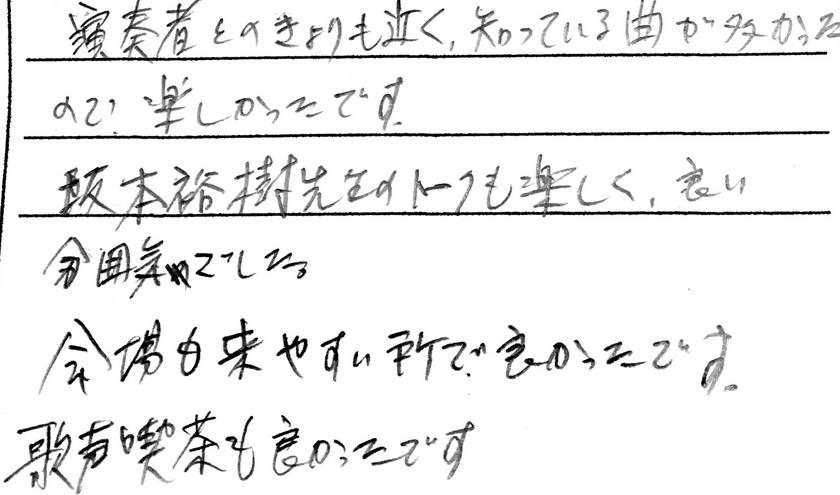 演奏者とのきょりも近く、知っている曲が多かった
ので、楽しかったです。
坂本裕樹先生のトークも楽しく、良い
雰囲気でした。
会場も来やすい所で良かったです。
歌声喫茶も良かったです